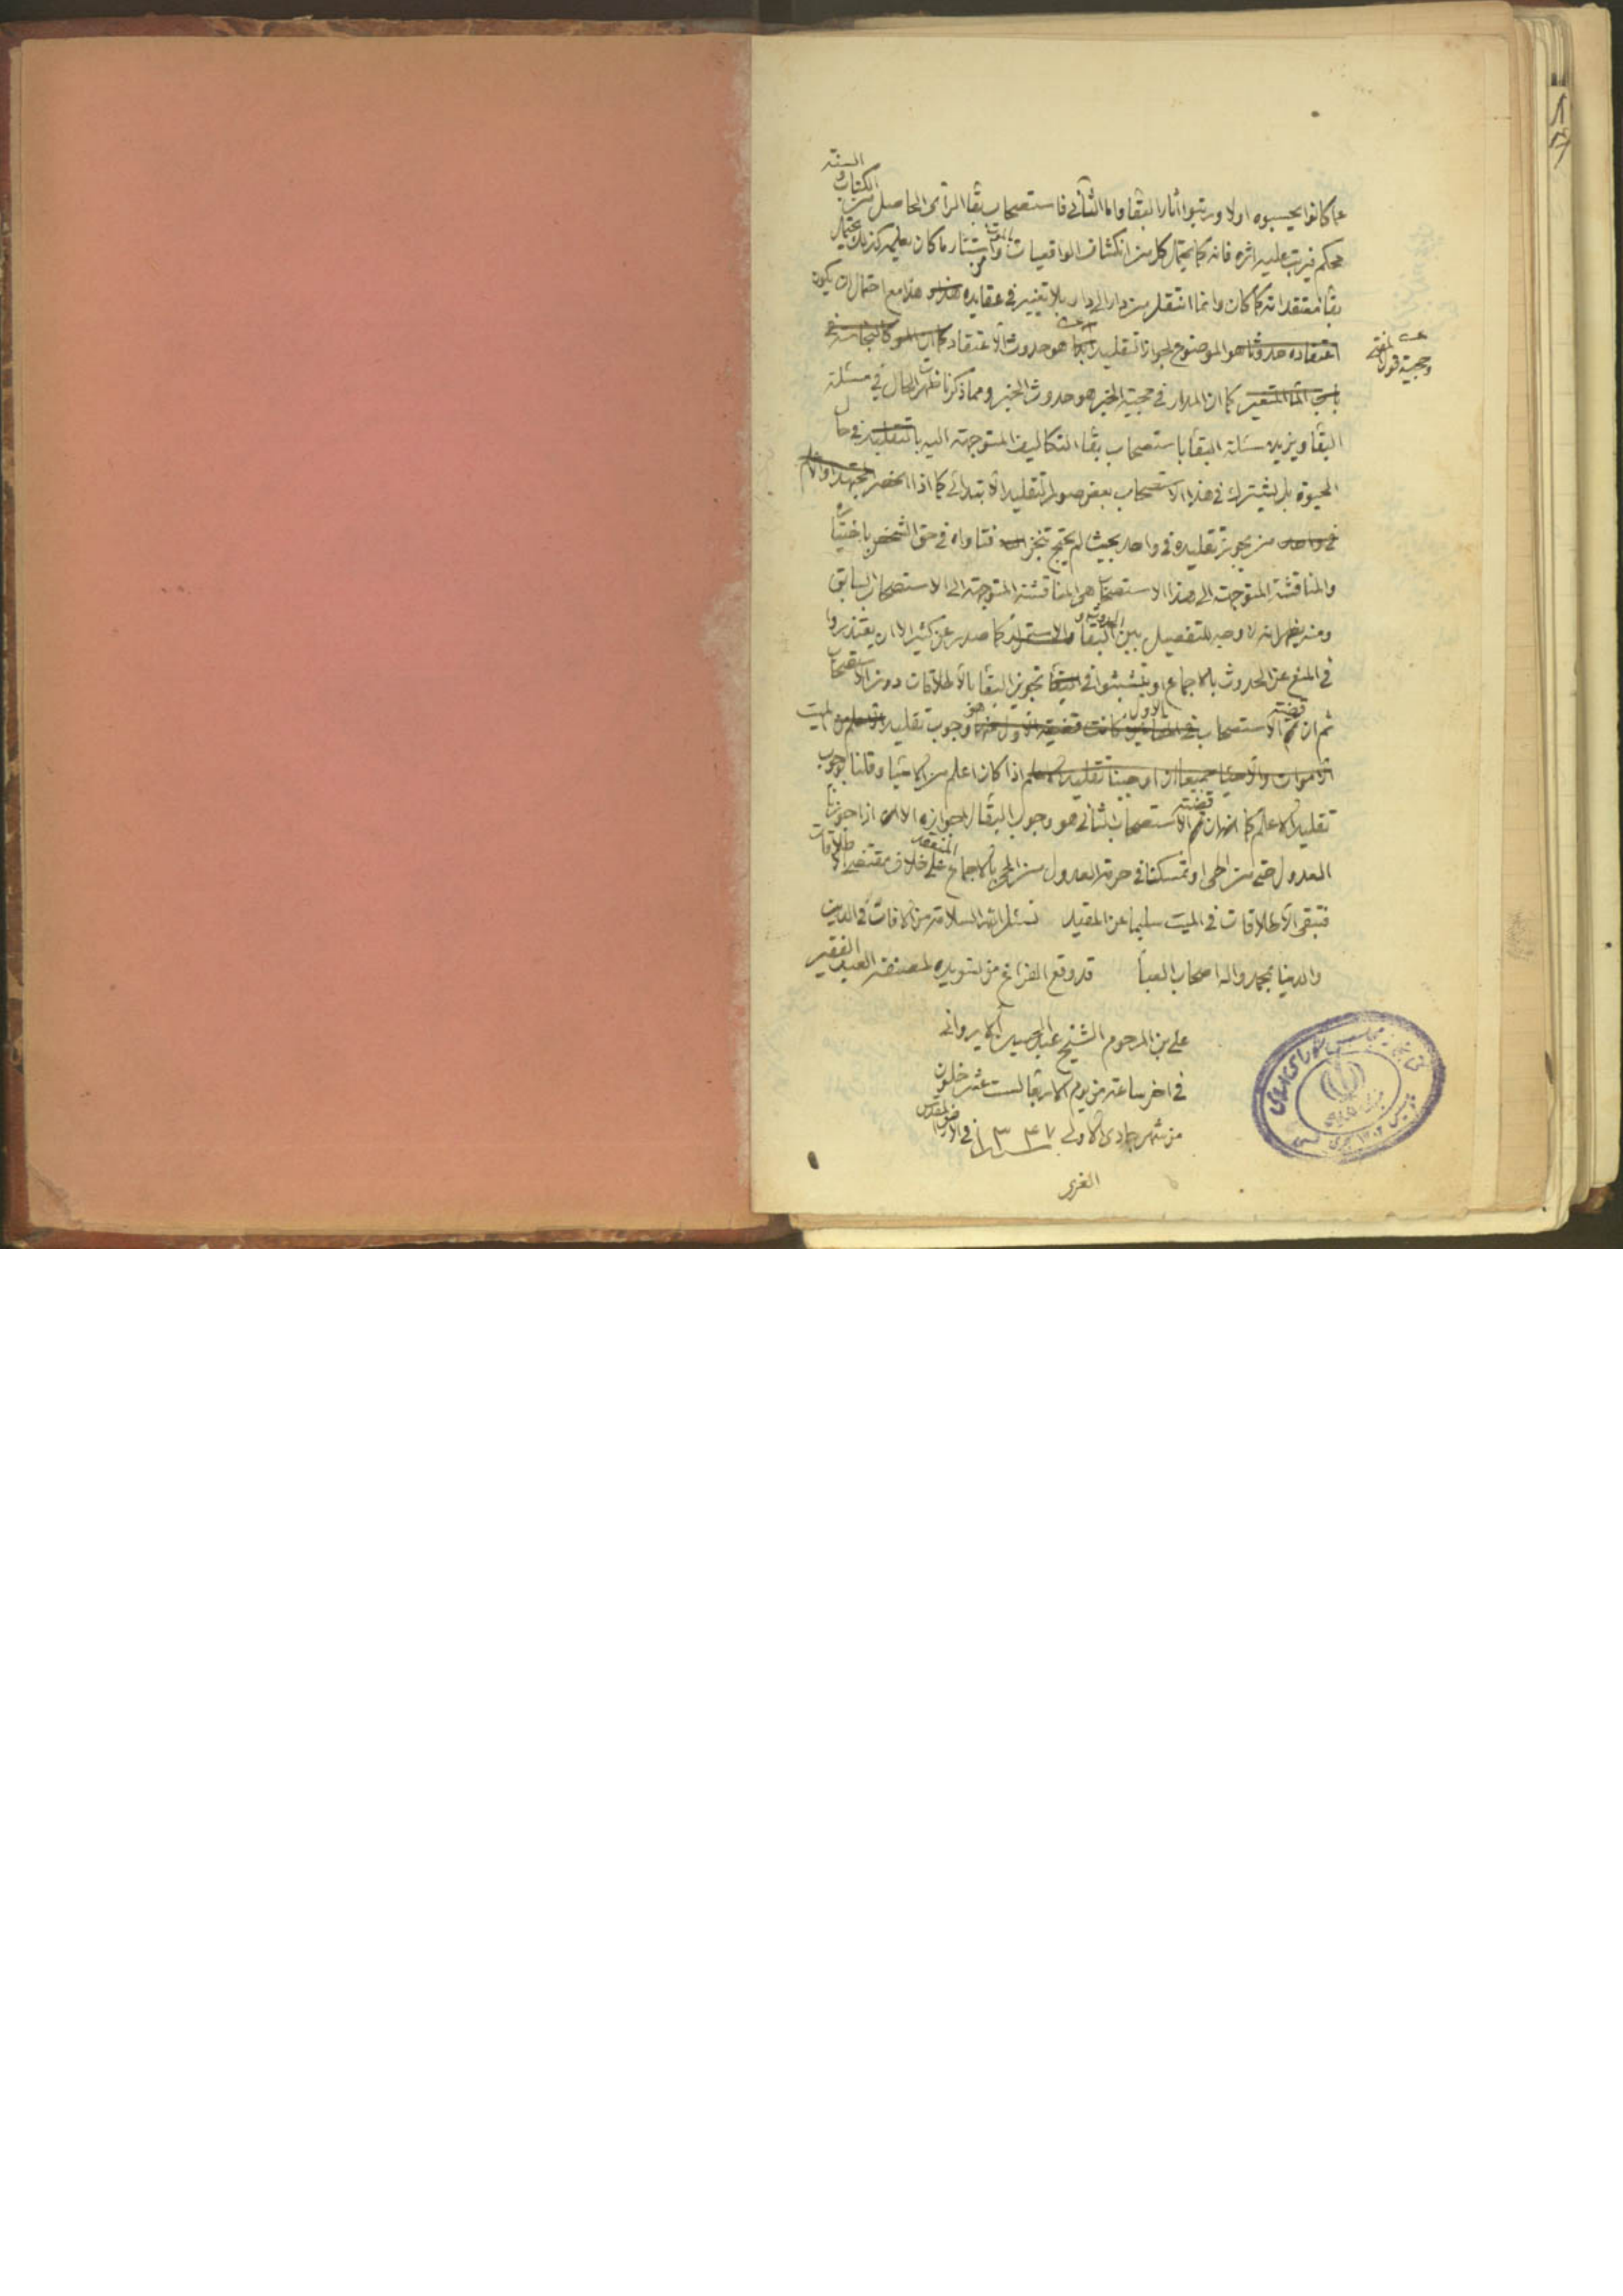 عما كانوا يحسبوه اولا ورتبوا اثار البقا واما الثاني فاستصحاب بقا الرأى الحاصل من الكتاب والسنة
محكم فيرتب عليه اثره فانه كما يحتمل كل من انكشاف الواقعيات بالموت واستتار ما كان يعلمه كذلك يحتمل
بقا معتقداته كما كان وانما انتقل من دار الى دار بلا تغيير في عقايده هذا مع احتمال ان يكون
الموضوع لجواز التقليد وحجية قول المفتي هو حدوث الاعتقاد
كما ان المدار في حجية الخبر هو حدوث الخبر ومما ذكرنا ظهر الحال في مسئلة
البقا ويزيد مسئلة البقا باستصحاب بقا التكاليف المتوجهة اليه بالتقليد في حال
الحيوة بل يشترك في هذا الاستصحاب بعض صور التقليد الابتدائي كما اذا انحصر
من يجوز تقليده في واحد بحيث لم يحتج تنجز فتاواه في حق الشخص باختياره
والمناقشة المتوجهة الى هذا الاستصحاب هى المناقشة المتوجهة الى الاستصحاب السابق
ومنه يظهر انه لا وجه للتفصيل بين الحدوث و البقا كما صدر عن كثير الا ان يعتذروا
في المنع عن الحدوث بالاجماع او يتشبثوا في تجويز البقا بالاطلاقات دون الاستصحاب
ثم ان قضية الاستصحاب الاول هو وجوب تقليد الميت
اذا كان اعلم من الاحيا وقلنا بوجوب
تقليد الاعلم كما ان قضية الاستصحاب الثاني هو وجوب البقا لا جوازه الا اذا جوزنا
العدول حتى من الحى او تمسكنا في حرمة العدول من الحى بالاجماع المنعقد على خلاف مقتضى الاطلاقات
فتبقى الاطلاقات في الميت سليما عن المقيد نسئل الله السلامة من الافات في الدين
والدنيا بمحمد واله اصحاب العبا قد وقع الفراغ من تسويده لمصنفه العبد الفقير
علي بن المرحوم الشيخ عبد الحسين الايرواني
في اخر ساعة من يوم الاربعا لست عشر خلون
من شهر جمادى الاولى ١٣٤٧ في الارض المقدس
الغرى